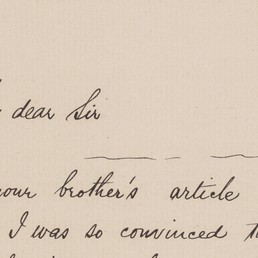 dear Sir
your brother's article
I was so convinced